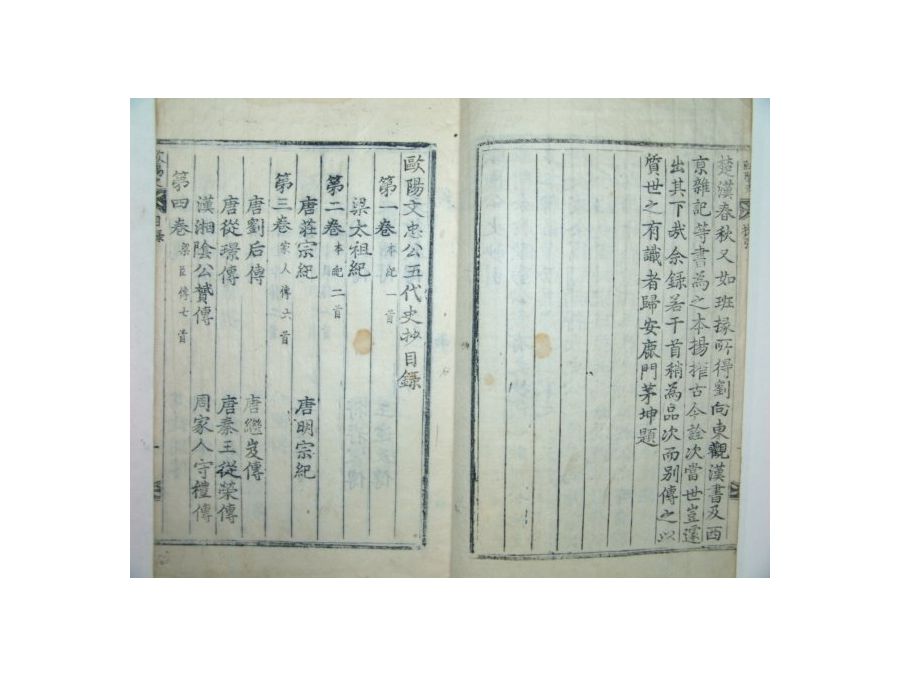 楚漢春秋又如班掾所得劉向東觀漢書及西
京雜記等書為之本揚搉古今詮次當世豈遽
出其下㢤余録若干首稍為品次而別傳之以
質世之有識者歸安鹿門茅坤題
歐陽文忠公五代史抄目録
第一卷 本紀一首
梁太祖紀
第二卷 本紀二首
唐莊宗紀 唐明宗紀
第三卷 家人傳六首
唐劉后傳 唐繼岌傳
唐從璟傳 唐秦王從榮傳
漢湘陰公贇傳 周家人守禮傳
第四卷 梁臣傳七首
目録